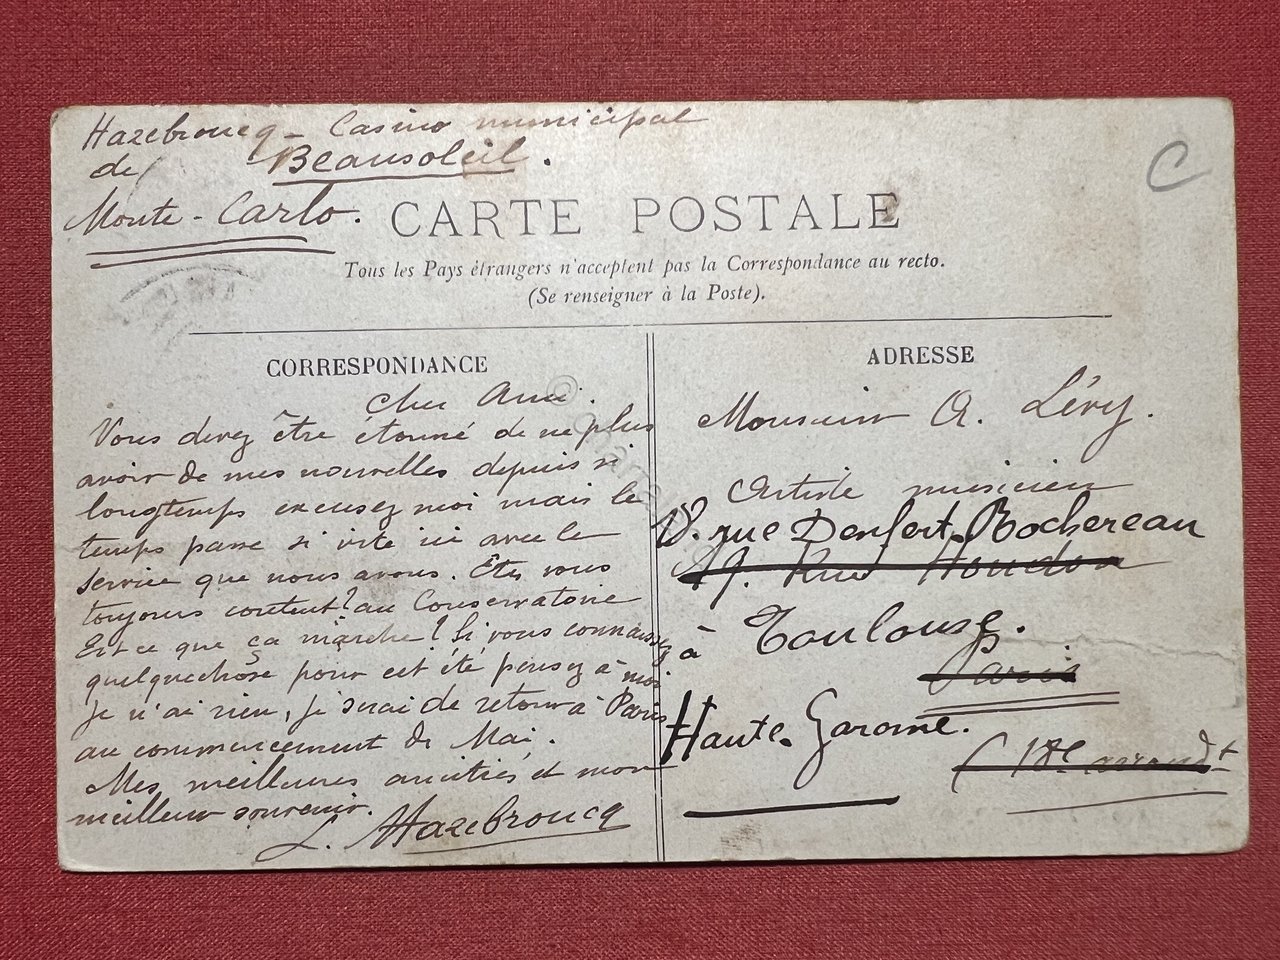 Hazebroucq - Casino municipal
de Beausoleil.
Monte-Carlo.
C
CARTE POSTALE
Tous les Pays étrangers n'acceptent pas la Correspondance au recto.
(Se renseigner à la Poste).
CORRESPONDANCE
Cher Ami.
Vous devez être étonné de ne plus
avoir de mes nouvelles depuis si
longtemps excusez moi mais le
temps passe si vite ici avec le
service que nous avons. Etes vous
toujours content? au Conservatoire
Est ce que ça marche? Si vous connaissez
quelquechose pour cet été pensez à moi
je n'ai rien, je serai de retour à Paris
au commencement de Mai.
Mes meilleures amitiés et mon
meilleur souvenir.
L. Hazebroucq
ADRESSE
Monsieur A. Lévy.
Artiste musicien
rue Denfert-Rochereau
19. Rue Houdon
à Toulouse.
Paris
Haute-Garonne.
(18e arrondt